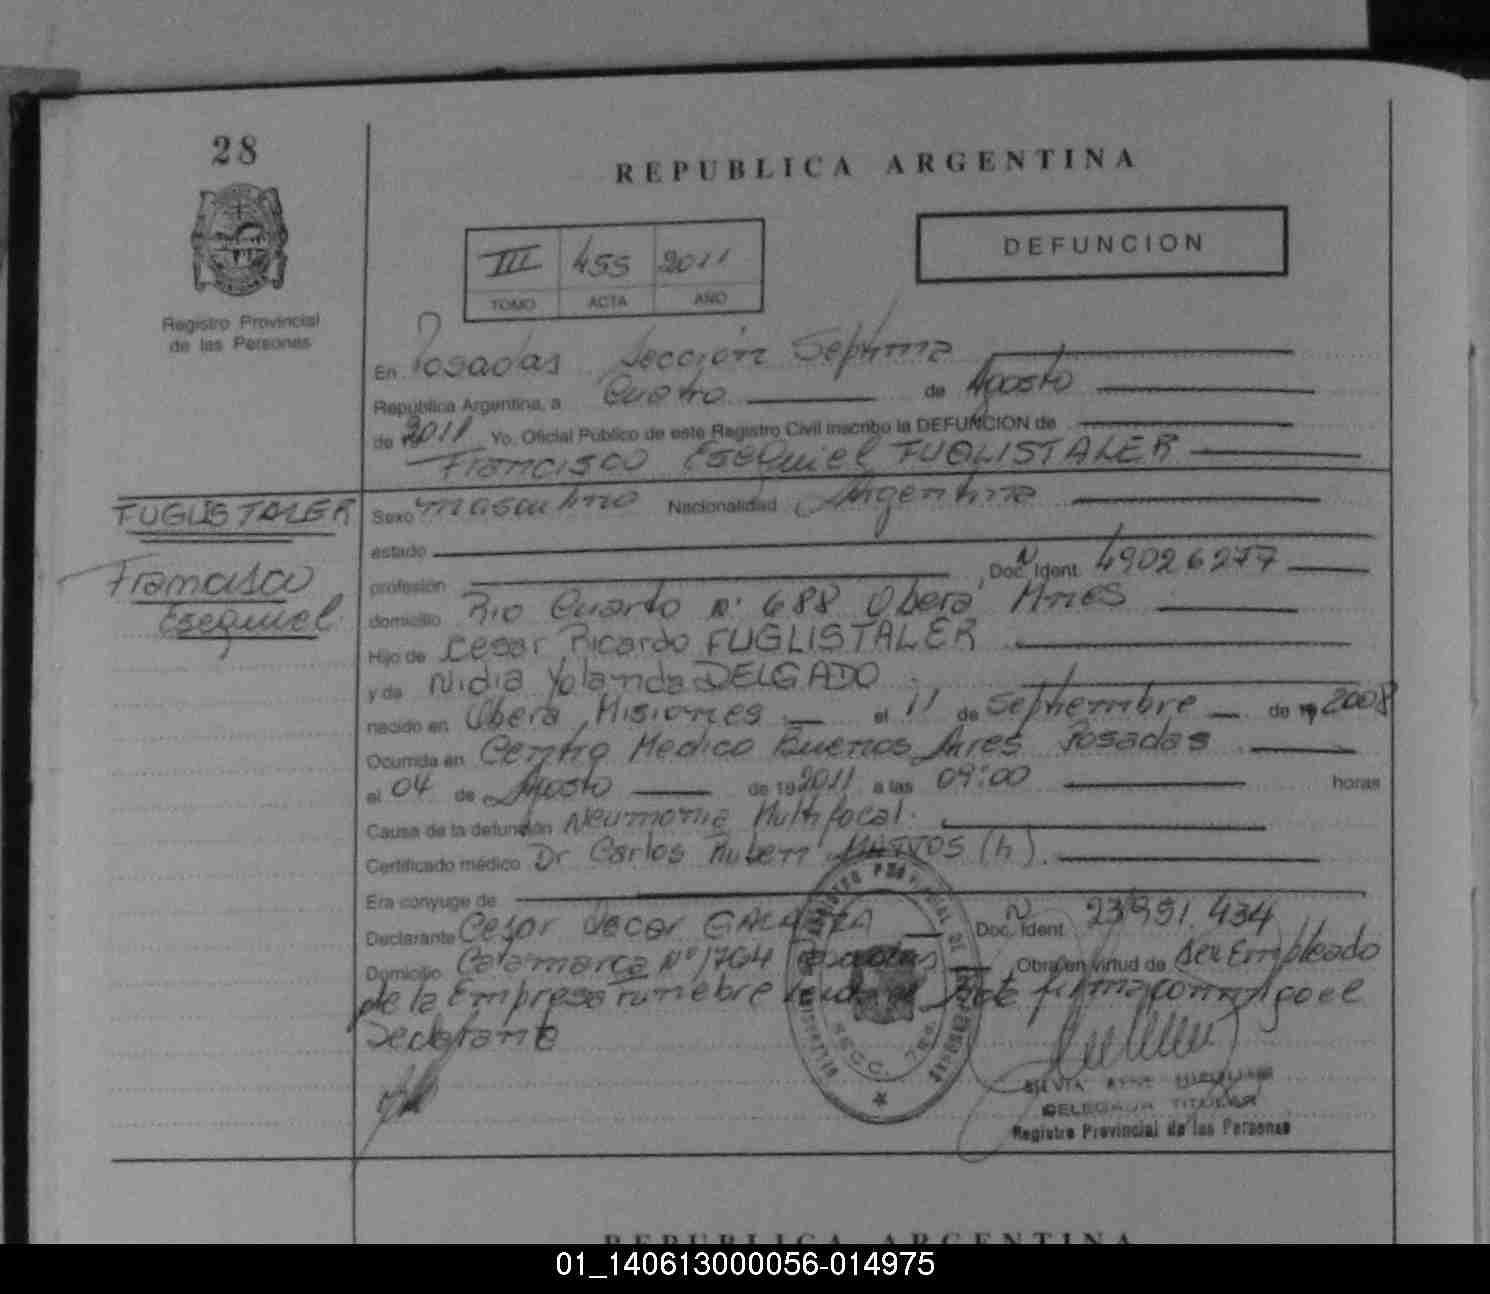 28
REPUBLICA ARGENTINA
DEFUNCION
III 455 2011
TOMO ACTA AÑO
Registro Provincial
de las Personas
En Posadas Sección Septima
República Argentina, a Cuatro de Agosto
de 2011 Yo, Oficial Público de este Registro Civil inscribo la DEFUNCION de
Francisco Esequiel FUGLISTALER
FUGLISTALER
Francisco
Esequiel
Sexo masculino Nacionalidad Argentina
estado
profesión Doc. Ident. N 49026277
domicilio Rio Cuarto n° 688 Obera Mnes
Hijo de Cesar Ricardo FUGLISTALER
y de Nidia Yolanda DELGADO
nacido en Obera, Misiones el 11 de Septiembre de 19 2008
Ocurrida en Centro Medico Buenos Aires Posadas
el 04 de Agosto de 19 2011 a las 09:00 horas
Causa de la defunción Neumonia Multifocal.
Certificado médico Dr Carlos Ruben MATTOS (h).
Era cónyuge de
Declarante Cesar Oscar Doc. Ident. N 23.951.434
Domicilio Catamarca N° 1764 Posadas Obra en virtud de ser Empleado
de la Empresa Funebre firma conmigo el
Declarante
REGISTRO PROVINCIAL DE LAS PERSONAS
SILVIA
DELEGADA TITULAR
Registro Provincial de las Personas
REPUBLICA ARGENTINA
01_140613000056-014975